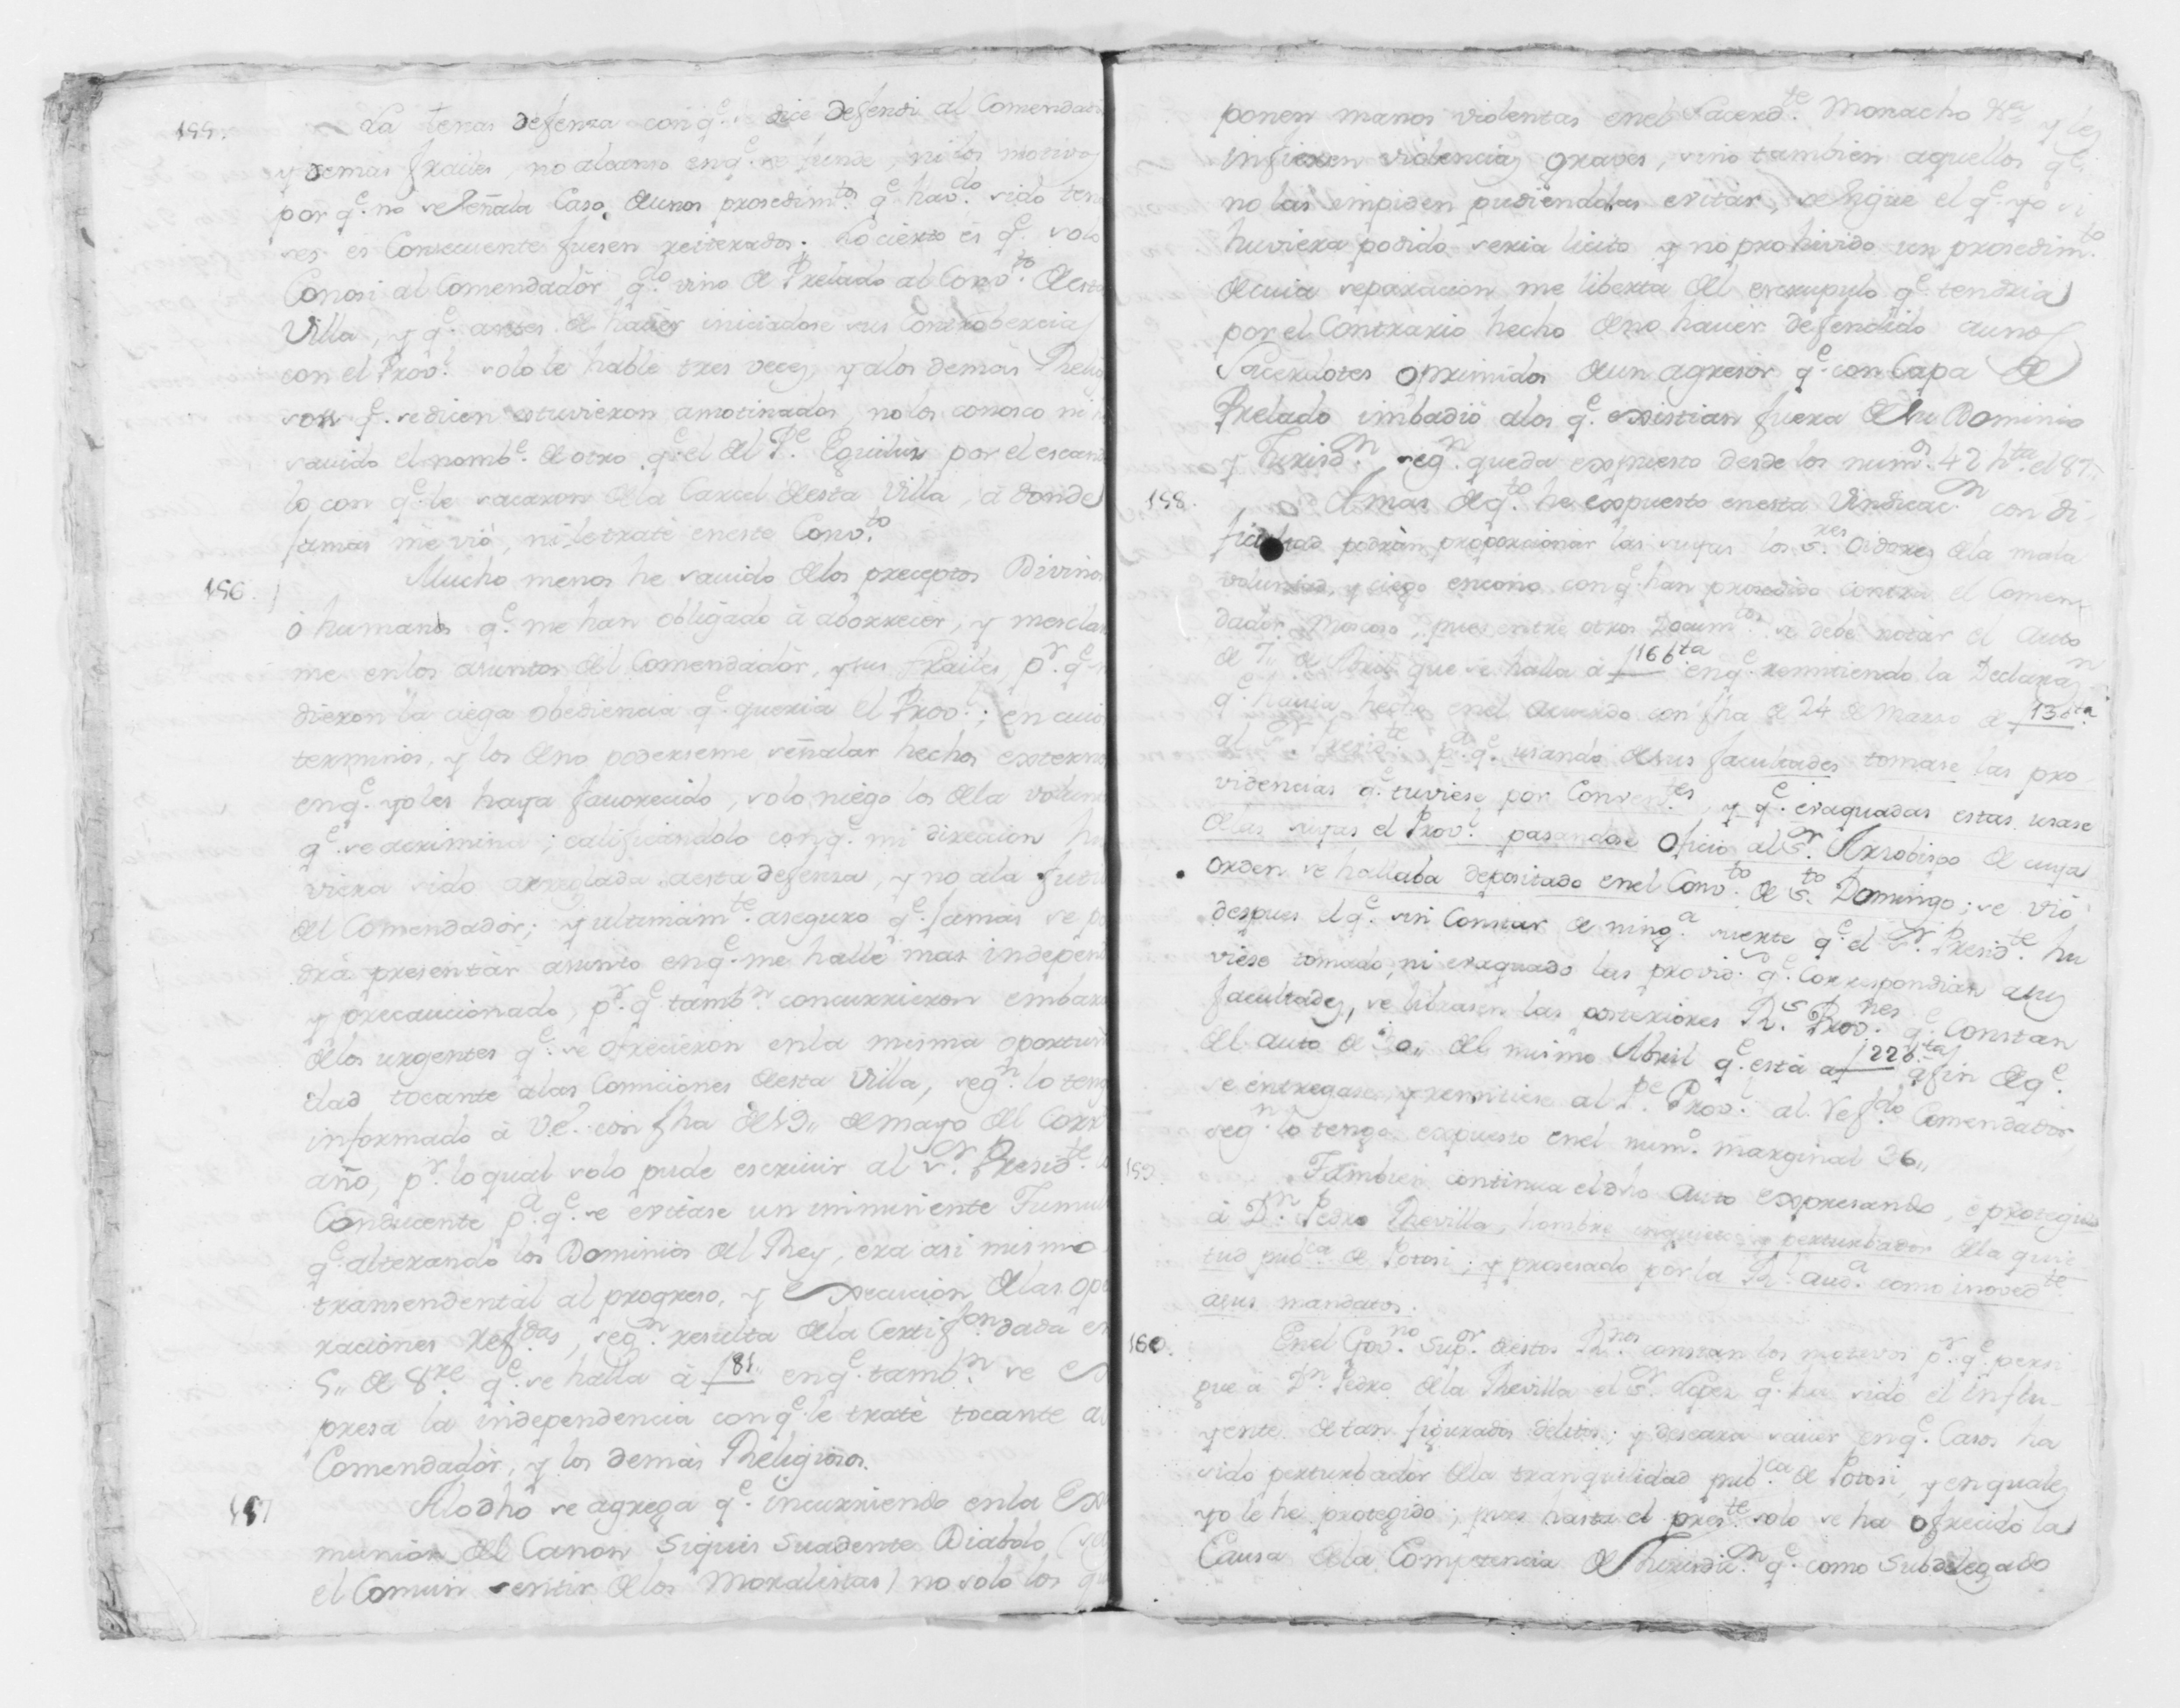 155. La tenas defensa con q.e dice defendi al Comendad
y demas frailes, no alcanso en q.e se funde, ni los motivos
por q.e no señala Caso, aunos prosedim.tos q.e hav.do sido tena
ses es Consecuente fuesen reiterados. Lo cierto es q.e solo
Conosi al Comendadór q.do vino de Prelado al Conv.to de esta
Villa, y q.e antes de haver iniciadose sus Controbercias
con el Prov.l solo le hablè tres veces, y a los demàs Relig
son q.e se dicen estuvieron amotinados, no los conosco ni
savido el nomb.e de otro q.e el del P.e Eguiluz por el escand
lo con q.e le sacaron de la Carcel de esta Villa, à donde
jamas mè viò, ni le tratè en este Conv.to
156. Mucho menos he savido de los preceptos Divinos
ò humanos q.e me han obligado à aborrecer, y mesclar
me en los asuntos del Comendadòr, y sus Frailes, p.r q.e
dieron la ciega obediencia q.e queria el Prov.l; en cuio
terminos, y los de no poderseme señalar hechos externos
en q.e yo les haya favorecido, solo niego los de la volun
q.e se acrimina; calificandolo con q.e mi direccion hu
viera sido arreglada a esta defensa, y no a la
del Comendadòr; y ultimam.te aseguro q.e jamàs se po
drà presentàr asunto en q.e me hallè mas indepen
y precaucionado, p.r q.e tamb.n concurrieron embara
de los urgentes q.e se ofrecieron en la misma oportuni
dad tocante a las Comiciones de esta Villa, seg.n lo teng
informado à V.e. con fha de 19,, de mayo del Corr
año, p.r lo qual solo pude escrivir al S.r Presid.te
Conducente p.a q.e se evitàse un imminente Tumul
q.e alterando los Dominios del Rey, era asi mismo
transendentàl al progreso, y Execucion de las ope
raciones ref.das, seg.n resulta de la Certif.on dada en
5,, de 8.re q.e se halla à f 81,, en q.e tamb.n se Ex
presa la independencia con q.e le tratè tocante al
Comendadòr, y los demàs Religiosos.
157 A lo dho se agrega q.e incurriendo en la Exco
munion del Canon Siquis Suadente Diabolo (seg
el Comun sentir de los Moralistas) no solo los que
ponen manos violentas en el Sacerd.te Monacho &a y les
infieren violencias graves, sino tambien aquellos q.e
no las impiden pudiendolas evitàr, se sigue el q.e yo si
huviera podido seria licito y no prohivido un prosedim.to
de cuia separacion me liberta del escrupulo q.e tendria
por el Contrario hecho de no havèr defendido a unos
Sacerdotes oprimidos de un agresòr q.e con Capa de
Prelado imbadiò a los q.e existian fuera de su Dominio
y Jurisd.n seg.n queda expuesto desde los num.s 42 h.ta el 87,,
158. A mas de q.to he expuesto en esta Vindicac.n con di-
ficultad podràn proporcionar las suyas los S.res Oidores de la mala
voluntad, y ciego encono con q.e han prosedido contra el Comen-
dadòr Moscoso, pues entre otros Docum.tos se debe notàr el Auto
de 7,, de Abril que se halla à f 166.ta en q.e remitiendo la Declara.n
q.e havia hecho en el Acuerdo con fha de 24 de Marso de f 136.ta
al S.r Presid.te p.a q.e usando de sus facultades tomase las pro
videncias q.e tuviese por Convent.es, y q.e evaquadas estas usase
de las suyas el Prov.l pasandose Oficio al S.r Arsobispo de cuya
orden se hallaba depositado en el Conv.to de S.to Domingo; se viò
despues el q.e sin Constar de ning.a suerte q.e el S.r Presid.te hu
viese tomado, ni evaquado las provid.s q.e Correspondian a sus
facultades, se librasen las posteriores R.s Prov.nes q.e Constan
del auto de 20,, del mismo Abril q.e està a f 226.ta a fin de q.e
se entregase, y remitiese al P.e Prov.l al Ref.do Comendadòr,
seg.n lo tengo expuesto en el num.o marginal 36,,
159. Tambien continua el dho Auto expresando, è protegido
à D.n Pedro Revilla, hombre inquieto y perturbador de la quie
tud pub.ca de Potosi; y prosesado por la R.l aud.a como inoved.te
a sus mandatos.
160. En el Gov.no Sup.or de estos R.nos constan los motivos p.r q.e persi
gue à D.n Pedro de la Revilla el S.r Lopez q.e ha sido el influ-
yente de tan figurados delitos; y deseara savèr en q.e Casos ha
sido perturbadòr de la tranquilidad pub.ca de Potosi, y en quales
yo le he protegido; pues hasta el pres.te solo se ha ofrecido la
Causa de la Competencia de Jurisdic.n q.e como Subdelegado